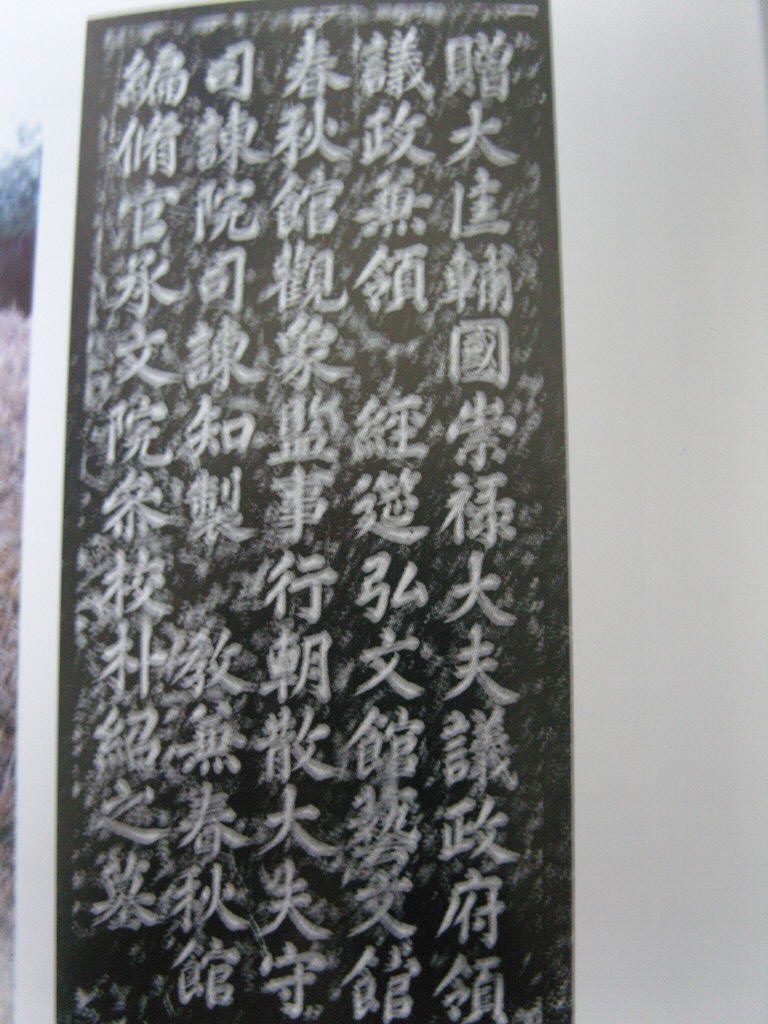 贈大匡輔國崇禄大夫議政府領
議政兼領 經筵弘文館藝文館
春秋館觀象監事行朝散大失守
司諫院司諫知製 敎兼春秋館
編脩官承文院叅校朴紹之墓